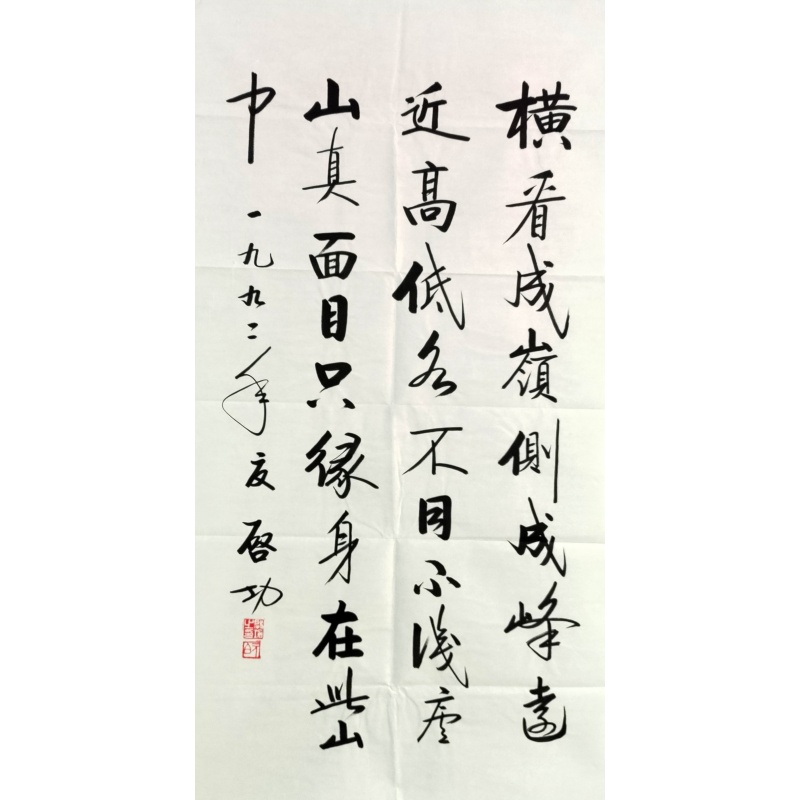 橫看成嶺側成峰遠
近高低各不同不識廬
山真面目只緣身在此山
中 一九九二年夏 啓功